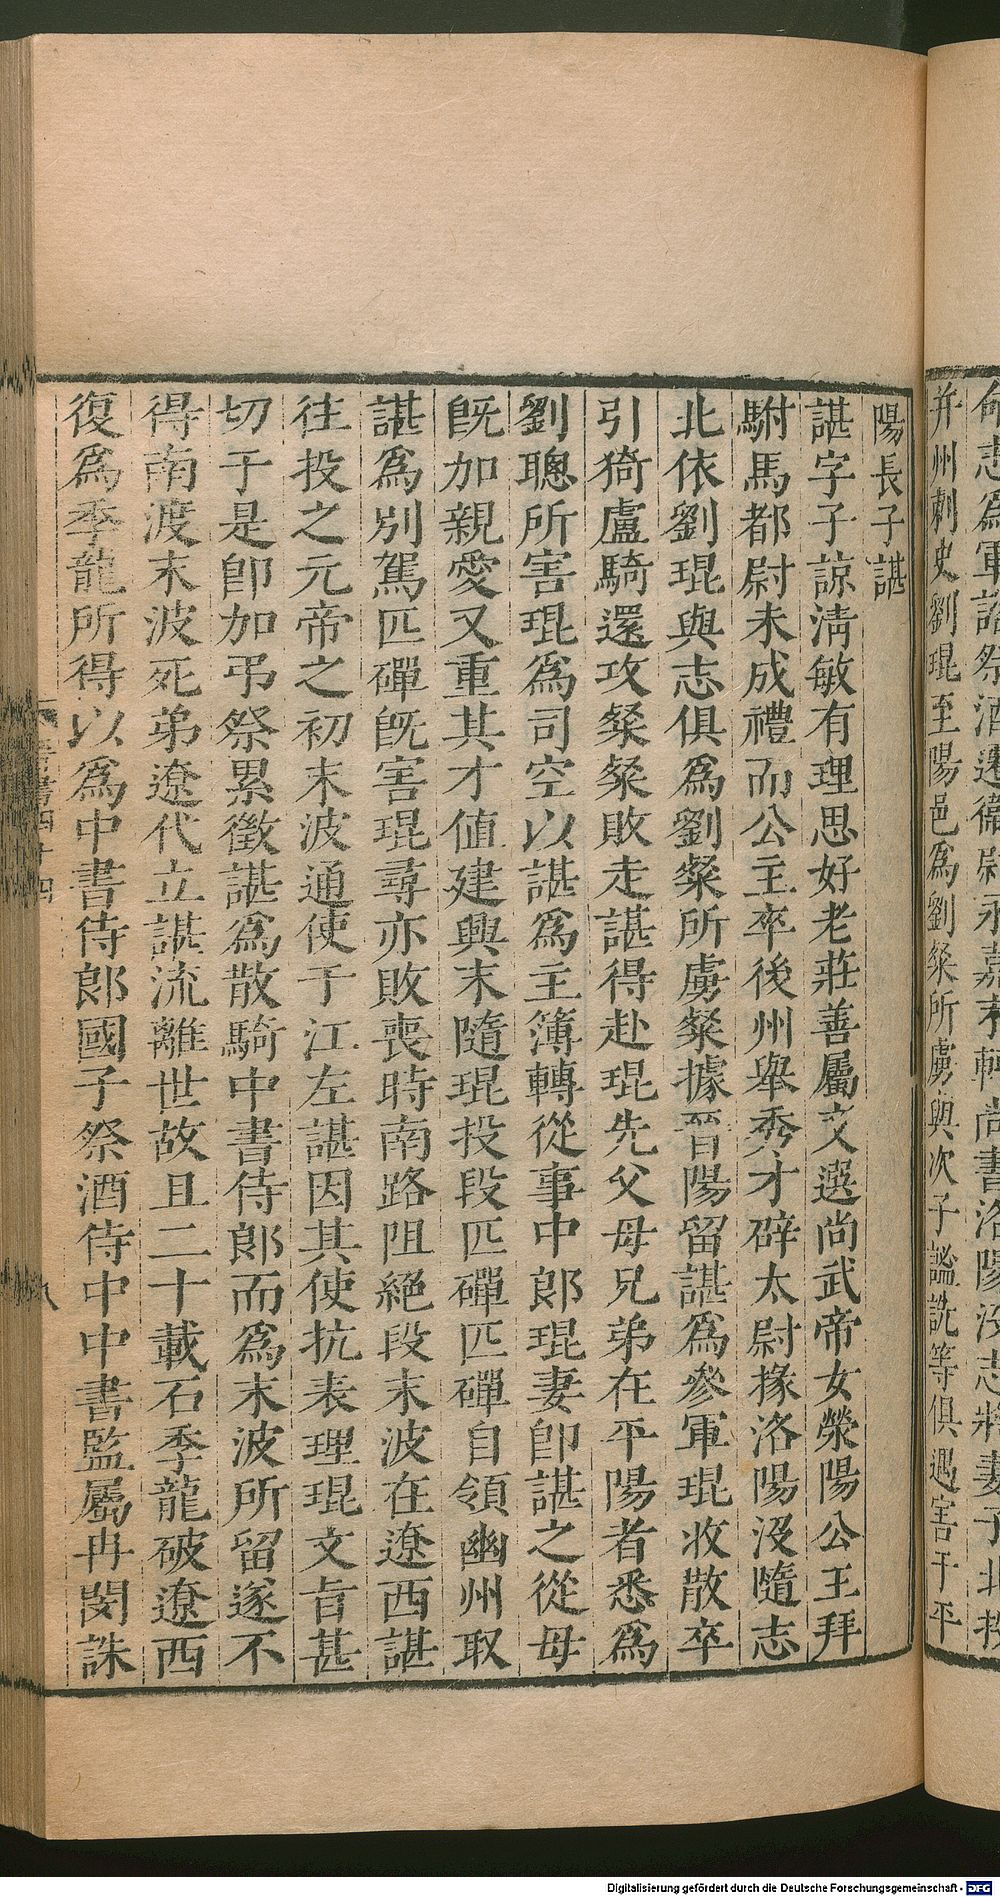 命志爲軍諮祭酒遷衞尉永嘉末轉尚書洛陽沒志將妻子北投
并州刺史劉琨至陽邑爲劉粲所虜與次子謐詵等俱遇害于平
陽長子諶
諶字子諒淸敏有理思好老莊善屬文選尚武帝女滎陽公王拜
駙馬都尉未成禮而公主卒後州舉秀才辟太尉掾洛陽沒隨志
北依劉琨與志俱爲劉粲所虜粲據晉陽留諶爲參軍琨收散卒
引猗盧騎還攻粲粲敗走諶得赴琨先父母兄弟在平陽者悉爲
劉聰所害琨爲司空以諶爲主簿轉從事中郞琨妻卽諶之從母
旣加親愛又重其才値建興末隨琨投段匹磾匹磾自領幽州取
諶爲別駕匹磾旣害琨尋亦敗喪時南路阻絕段末波在遼西諶
往投之元帝之初末波通使于江左諶因其使抗表理琨文旨甚
切于是卽加弔祭累徵諶爲散騎中書侍郞而爲末波所留遂不
得南渡末波死弟遼代立諶流離世故且二十載石季龍破遼西
復爲季龍所得以爲中書侍郞國子祭酒侍中中書監屬冉閔誅
晉書四十四
八
Digitalisierung gefördert durch die Deutsche Forschungsgemeinschaft - DFG